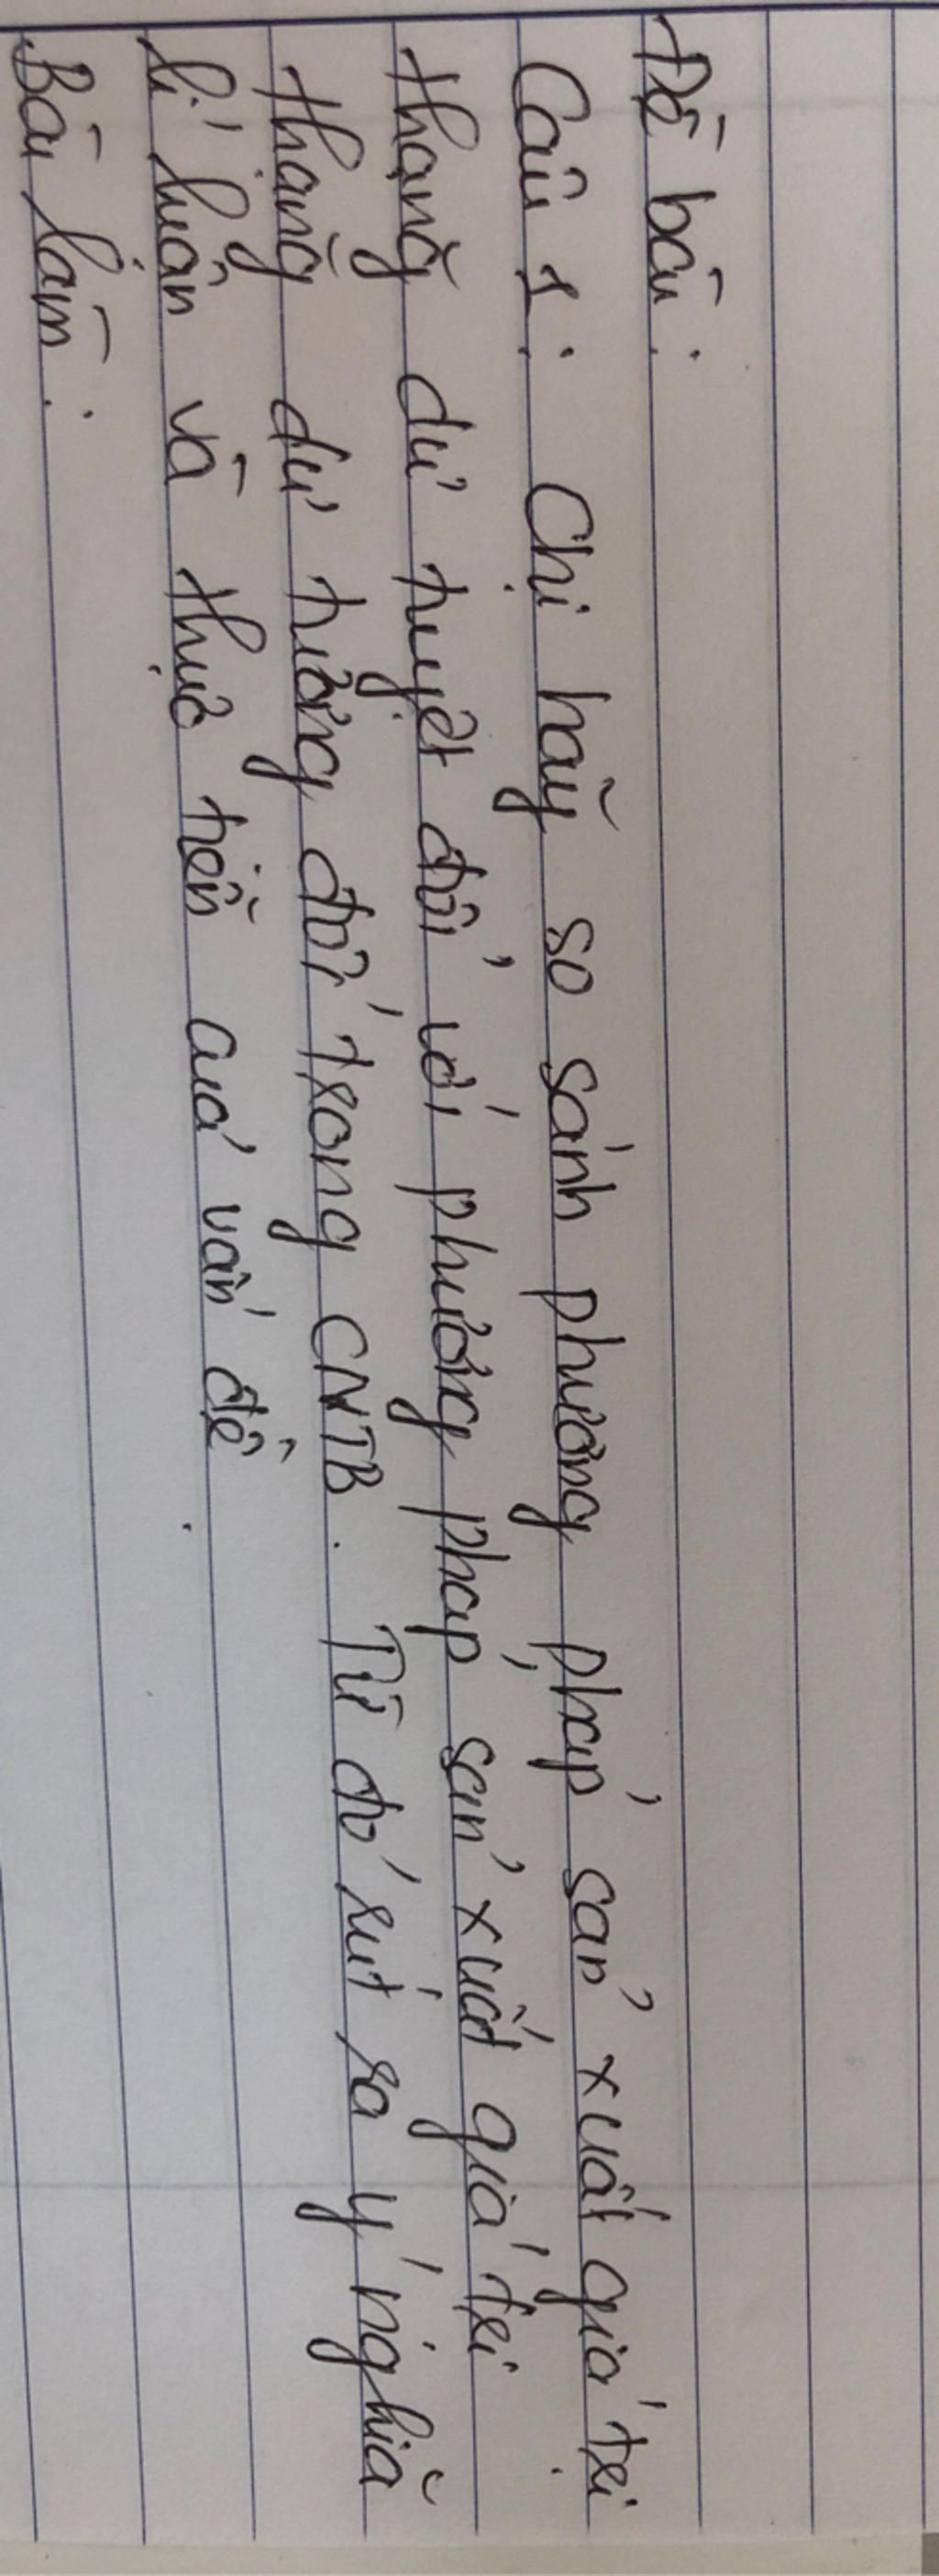 Đề bài:
Câu 1: Chị hãy so sánh phương pháp sản xuất giá trị
thặng dư tuyệt đối với phương pháp sản xuất giá trị
thặng dư tương đối trong CNTB. Từ đó rút ra ý nghĩa
lí luận và thực tiễn quá vấn đề.
Bài làm: